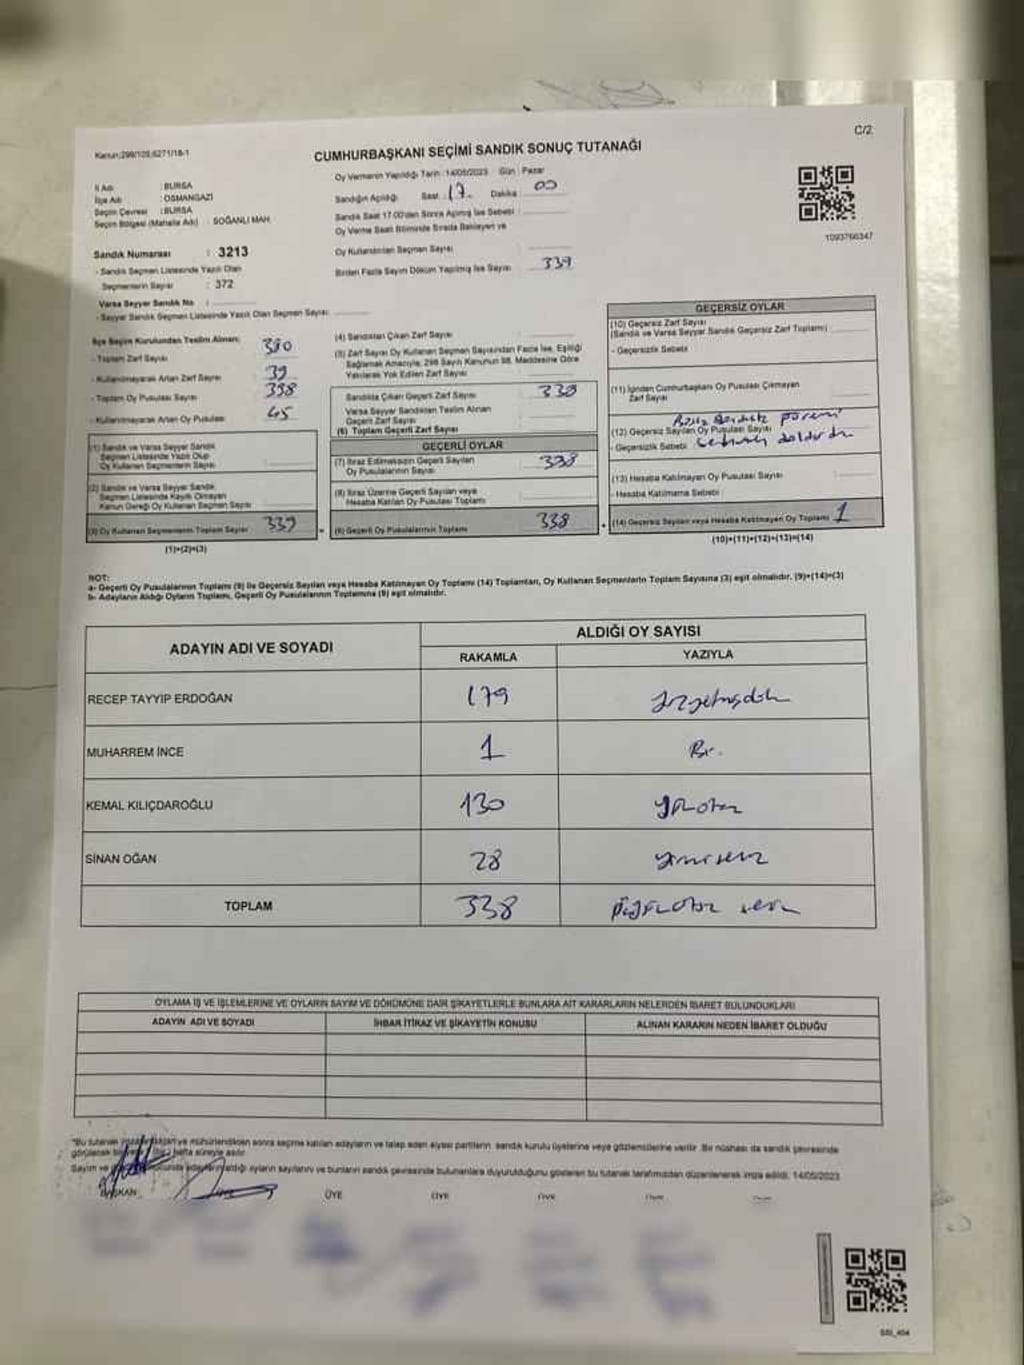 C/2
Kanun:298/105,6271/18-1
CUMHURBAŞKANI SEÇİMİ SANDIK SONUÇ TUTANAĞI
İl Adı : BURSA
İlçe Adı : OSMANGAZİ
Seçim Çevresi : BURSA
Seçim Bölgesi (Mahalle Adı) : SOĞANLI MAH.
Sandık Numarası : 3213
- Sandık Seçmen Listesinde Yazılı Olan
Seçmenlerin Sayısı : 372
Varsa Seyyar Sandık No :
- Seyyar Sandık Seçmen Listesinde Yazılı Olan Seçmen Sayısı:
Oy Vermenin Yapıldığı Tarih :14/05/2023 Gün : Pazar
Sandığın Açıldığı Saat : 17 Dakika : 00
Sandık Saat 17.00'den Sonra Açılmış İse Sebebi :
Oy Verme Saati Bitiminde Sırada Bekleyen ve
Oy Kullandırılan Seçmen Sayısı :
Birden Fazla Sayım Döküm Yapılmış İse Sayısı : 339
1093766347
İlçe Seçim Kurulundan Teslim Alınan;
- Toplam Zarf Sayısı : 380
- Kullanılmayarak Artan Zarf Sayısı : 39
- Toplam Oy Pusulası Sayısı : 398
- Kullanılmayarak Artan Oy Pusulası : 45
(1) Sandık ve Varsa Seyyar Sandık
Seçmen Listesinde Yazılı Olup
Oy Kullanan Seçmenlerin Sayısı :
(2) Sandık ve Varsa Seyyar Sandık
Seçmen Listesinde Kayıtlı Olmayan
Kanun Gereği Oy Kullanan Seçmen Sayısı :
(3) Oy Kullanan Seçmenlerin Toplam Sayısı : 339
(1)+(2)=(3)
(4) Sandıktan Çıkan Zarf Sayısı :
(5) Zarf Sayısı Oy Kullanan Seçmen Sayısından Fazla İse, Eşitliği
Sağlamak Amacıyla, 298 Sayılı Kanunun 98. Maddesine Göre
Yakılarak Yok Edilen Zarf Sayısı :
Sandıkta Çıkan Geçerli Zarf Sayısı : 338
Varsa Seyyar Sandıktan Teslim Alınan
Geçerli Zarf Sayısı :
(6) Toplam Geçerli Zarf Sayısı :
GEÇERLİ OYLAR
(7) İtiraz Edilmeksizin Geçerli Sayılan
Oy Pusulalarının Sayısı : 338
(8) İtiraz Üzerine Geçerli Sayılan veya
Hesaba Katılan Oy Pusulası Toplamı :
(9) Geçerli Oy Pusulalarının Toplamı : 338
GEÇERSİZ OYLAR
(10) Geçersiz Zarf Sayısı
(Sandık ve Varsa Seyyar Sandık Geçersiz Zarf Toplamı) :
- Geçersizlik Sebebi :
(11) İçinden Cumhurbaşkanı Oy Pusulası Çıkmayan
Zarf Sayısı :
(12) Geçersiz Sayılan Oy Pusulası Sayısı :
- Geçersizlik Sebebi :
(13) Hesaba Katılmayan Oy Pusulası Sayısı :
- Hesaba Katılmama Sebebi :
(14) Geçersiz Sayılan veya Hesaba Katılmayan Oy Toplamı : 1
(10)+(11)+(12)+(13)=(14)
NOT:
a- Geçerli Oy Pusulalarının Toplamı (9) ile Geçersiz Sayılan veya Hesaba Katılmayan Oy Toplamı (14) Toplamları, Oy Kullanan Seçmenlerin Toplam Sayısına (3) eşit olmalıdır. (9)+(14)=(3)
b- Adayların Aldığı Oyların Toplamı, Geçerli Oy Pusulalarının Toplamına (9) eşit olmalıdır.
ADAYIN ADI VE SOYADI
ALDIĞI OY SAYISI
RAKAMLA YAZIYLA
RECEP TAYYİP ERDOĞAN 179
MUHARREM İNCE 1 Bir.
KEMAL KILIÇDAROĞLU 130
SİNAN OĞAN 28
TOPLAM 338
OYLAMA İŞ VE İŞLEMLERİNE VE OYLARIN SAYIM VE DÖKÜMÜNE DAİR ŞİKAYETLERLE BUNLARA AİT KARARLARIN NELERDEN İBARET BULUNDUKLARI
ADAYIN ADI VE SOYADI İHBAR İTİRAZ VE ŞİKAYETİN KONUSU ALINAN KARARIN NEDEN İBARET OLDUĞU
ve mühürlendikten sonra seçime katılan adayların ve talep eden siyasi partilerin, sandık kurulu üyelerine veya gözlemcilerine verilir. Bir nüshası da sandık çevresinde
hafta süreyle asılır.
aldığı oyların sayılarını ve bunların sandık çevresinde bulunanlara duyurulduğunu gösteren bu tutanak tarafımızdan düzenlenerek imza edildi. 14/05/2023
BAŞKAN ÜYE ÜYE ÜYE ÜYE